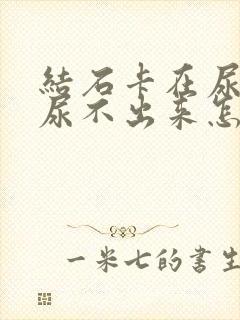 結石卡在尿
尿不出來怎
一米七的書生